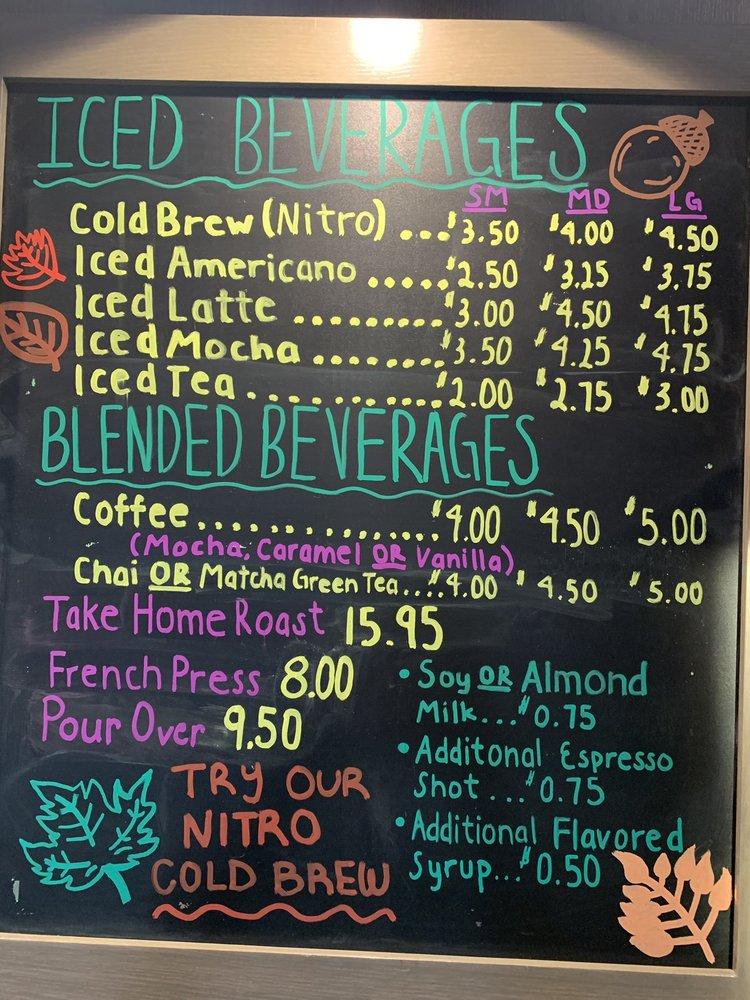 ICED BEVERAGES
SM MD LG
Cold Brew (Nitro) ...$3.50 $4.00 $4.50
Iced Americano .....$2.50 $3.25 $3.75
Iced Latte .........$3.00 $4.50 $4.75
Iced Mocha ........$3.50 $4.25 $4.75
Iced Tea ...........$2.00 $2.75 $3.00
BLENDED BEVERAGES
Coffee ..............$4.00 $4.50 $5.00
(Mocha, Caramel OR Vanilla)
Chai OR Matcha Green Tea...$4.00 $4.50 $5.00
Take Home Roast 15.95
French Press 8.00
Pour Over 9.50
• Soy OR Almond
Milk...$0.75
• Additonal Espresso
Shot ...$0.75
• Additional Flavored
Syrup...$0.50
TRY OUR
NITRO
COLD BREW